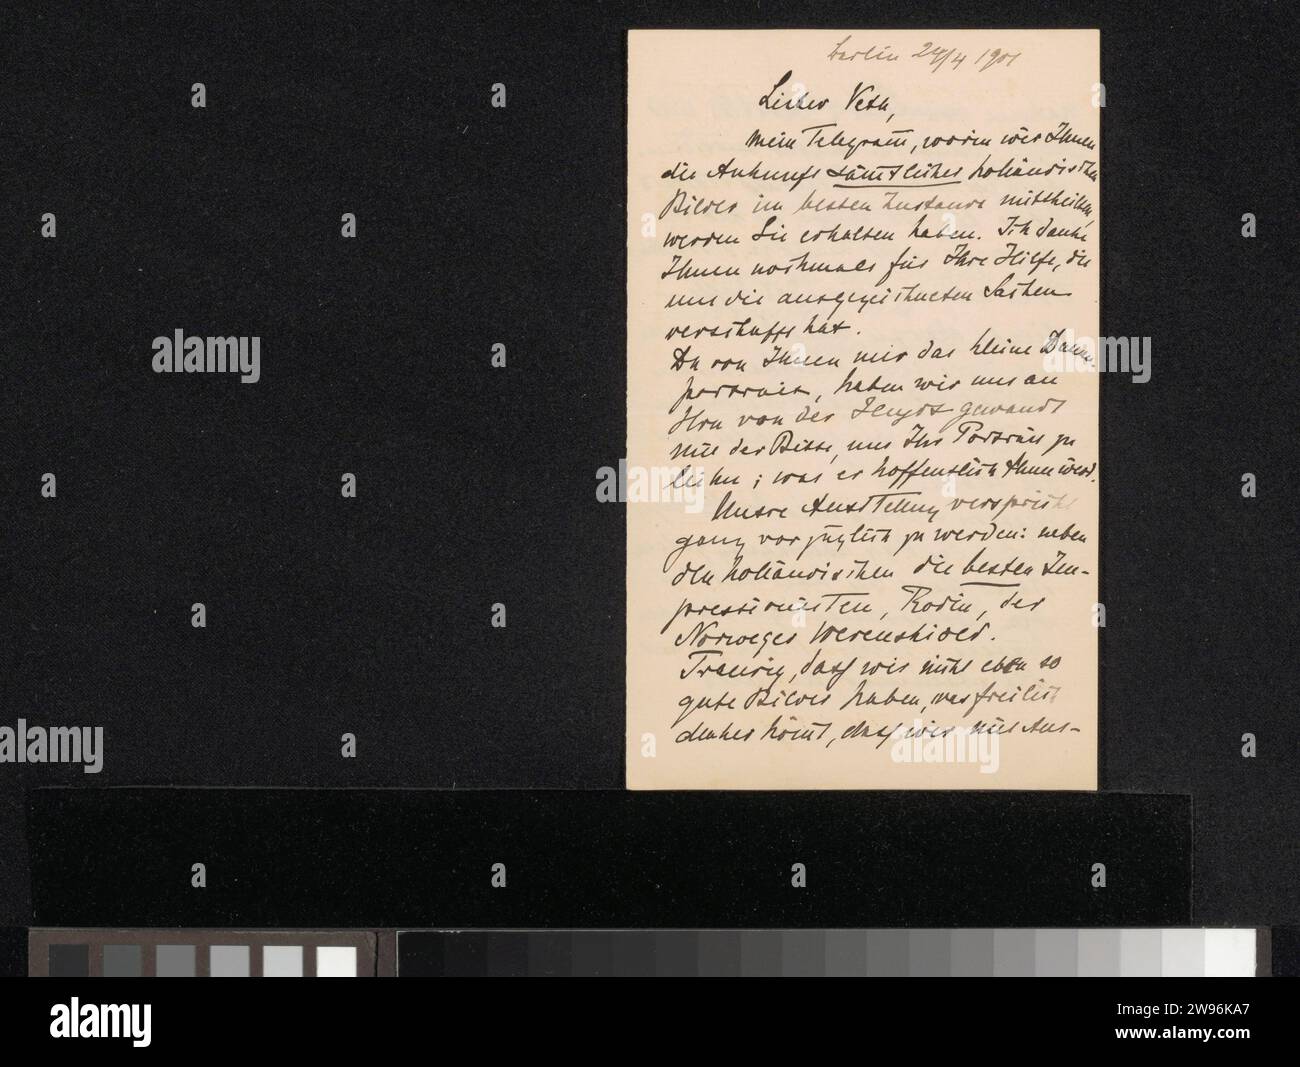 Berlin 24/4 1901
Lieber Veth,
mein Telegram̅, worin wir Ihnen
die Ankunft sämtlicher holländischen
Bilder im besten Zustande mittheilten,
werden Sie erhalten haben. Ich danke
Ihnen nochmals für Ihre Hilfe, die
uns die ausgezeichneten Sachen
verschafft hat.
Da von Ihnen nur das kleine Damen
portrait, haben wir uns an
Hrn von der gewandt
mit der Bitte, uns Ihr Porträt zu
leihen; was er hoffentlich thun wird.
Unsre Ausstellung verspricht
ganz vorzüglich zu werden: neben
den holländischen die besten Im-
pressionisten, Rodin, der
Norweger Werenskiold.
Traurig, dass wir nicht eben so
gute Bilder haben, was freilich
daher kom̅t, dass wir mit Aus-
alamy
a
alamy
www.alamy.com
Image ID: 2W96KA7